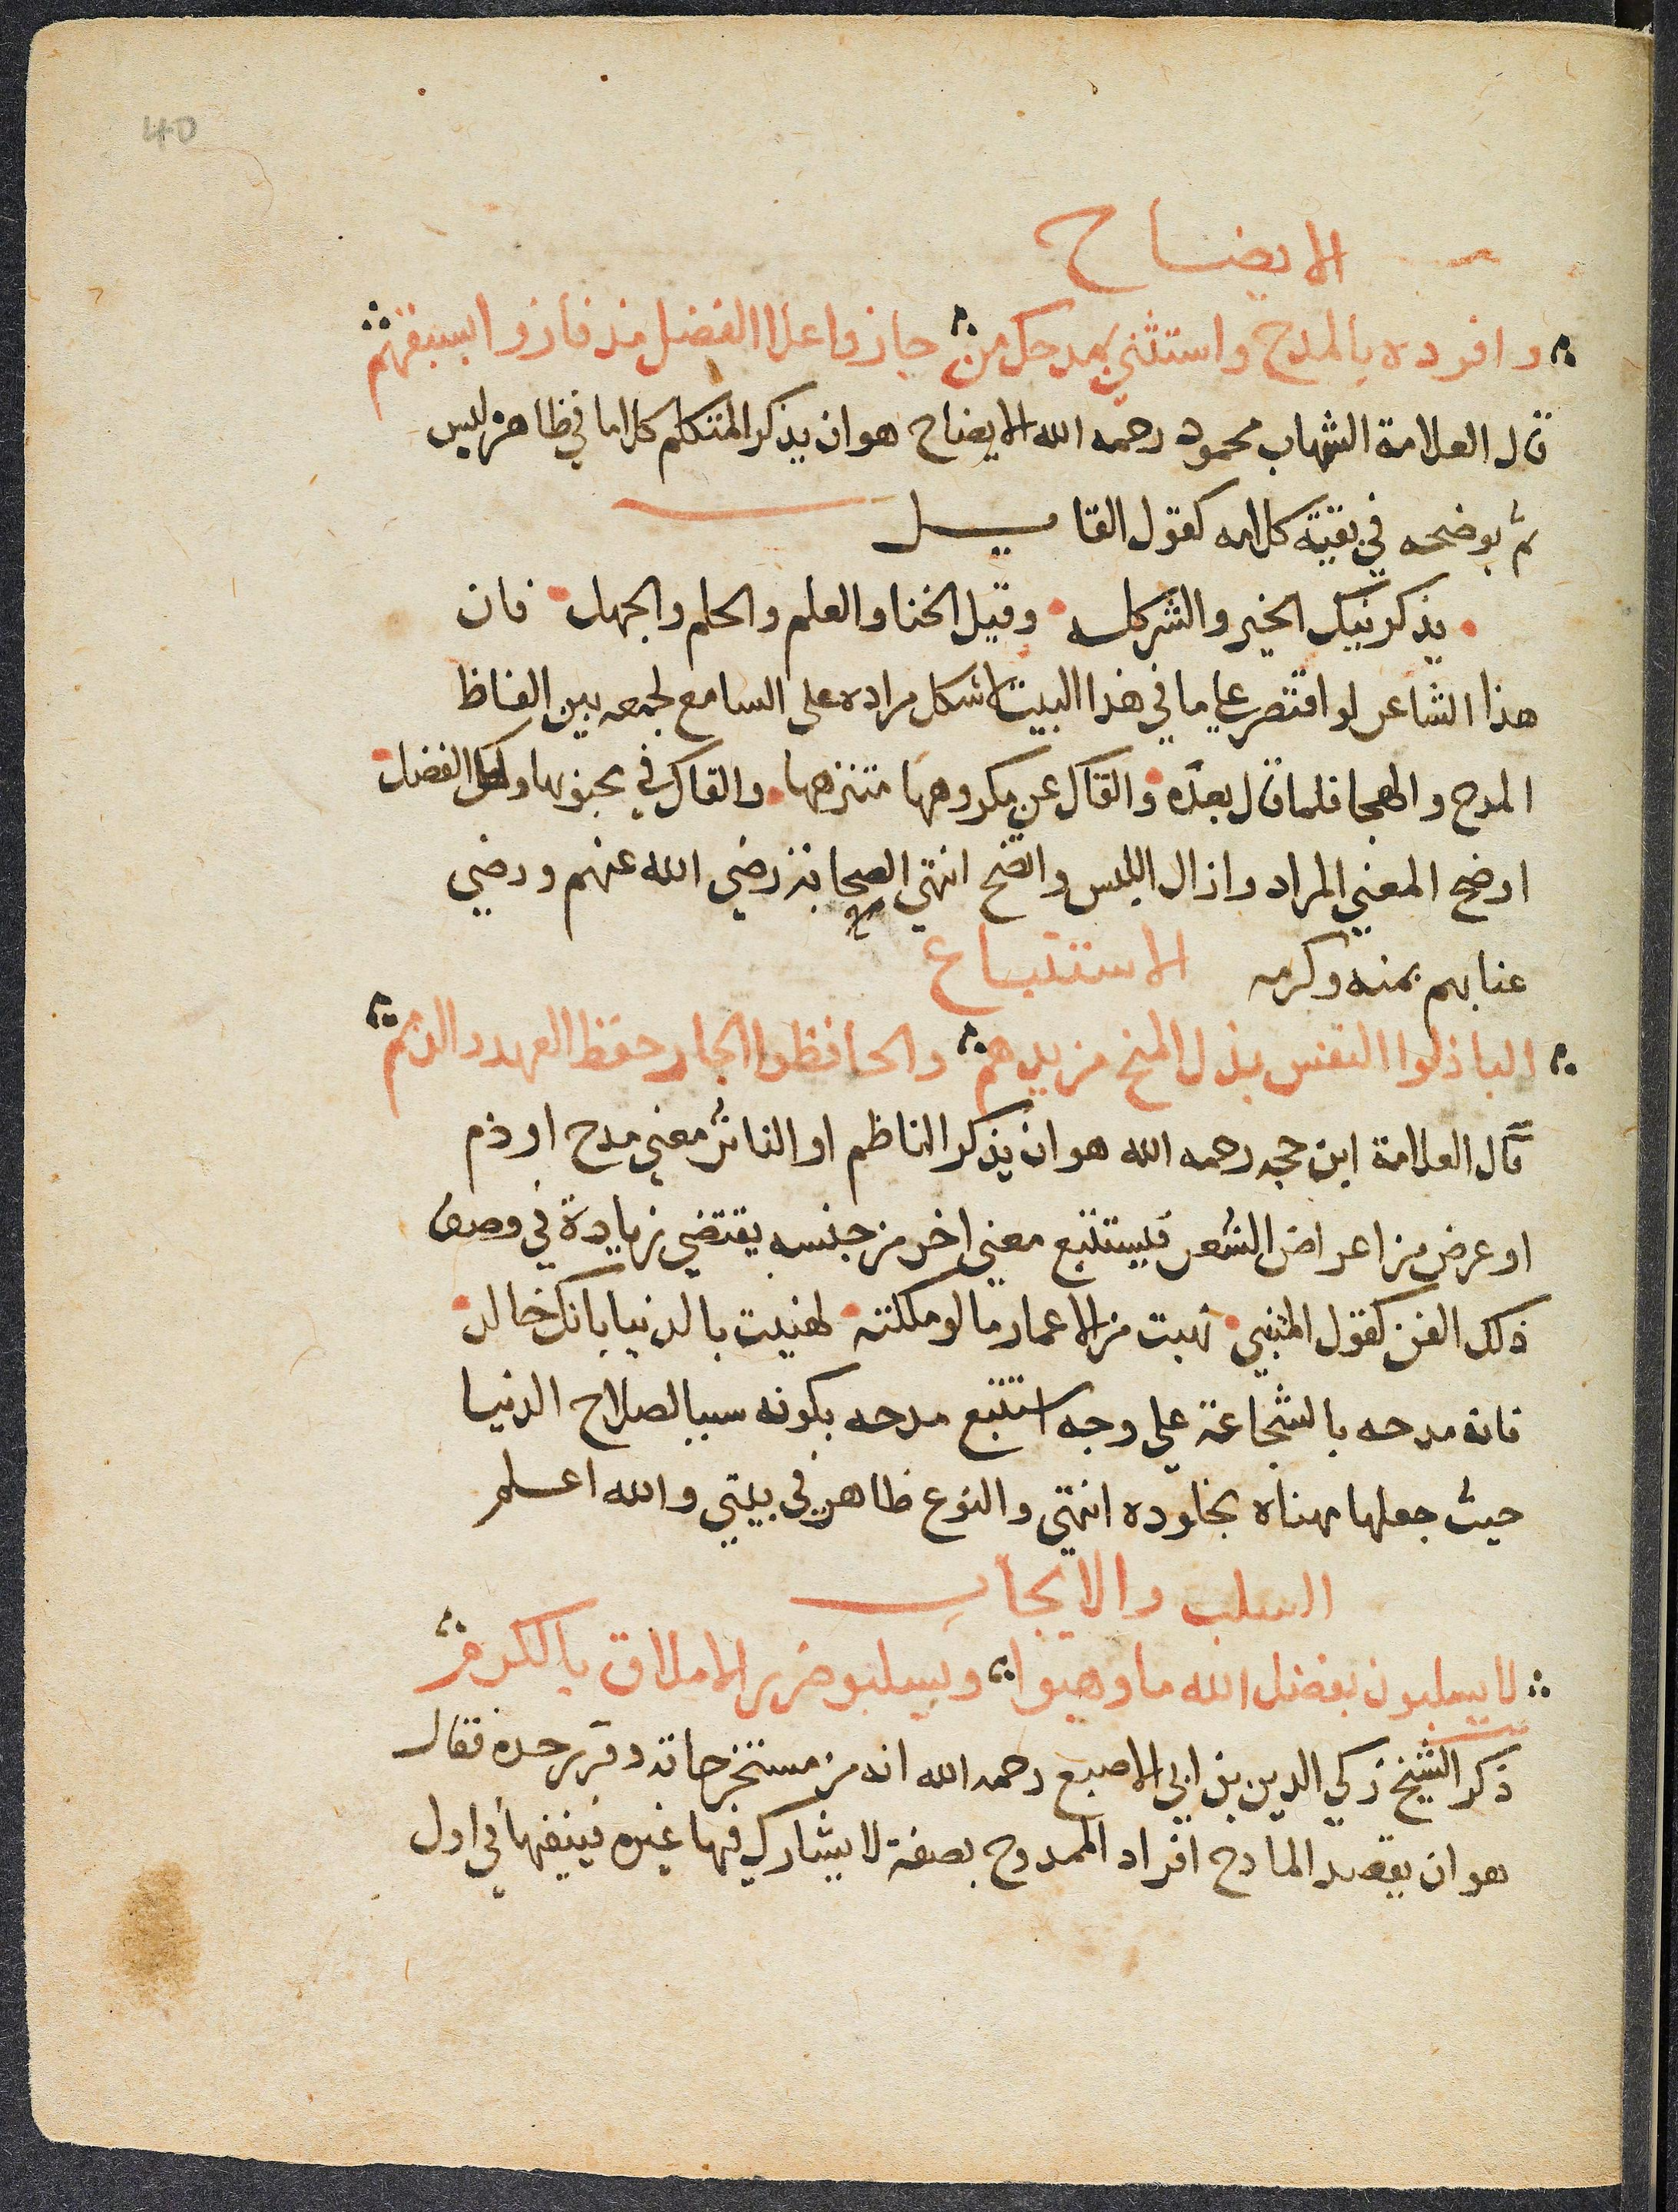 40
الايضاح
وافرده بالمدح واستثني بمدحك من حازوا علا الفضل مذ فازوا بسبقهم
قال العلامة الشهاب محمود رحمه الله الايضاح هو ان يذكر المتكلم كلاما في ظاهره لبس
ثم يوضحه في بقية كلامه كقول القايل
يذكرنيك الخير والشر كله وقيل الخنا والعلم والحلم والجهل فان
هذا الشاعر لو اقتصر علي ما في هذا البيت لاشكل مراده على السامع لجمعه بين الفاظ
المدح والهجا فلما قال بعده والقاك عن مكروهها متنزها والقاك في محبوبها ولك الفضل
اوضح المعني المراد وازال اللبس واتضح انتهي الصحابة رضي الله عنهم ورضي
عنا بهم بمنه وكرمه الاستتباع
الباذلوا النفس بذل المنح من يدهم والحافظوا الجار حفظ العهد والذمم
قال العلامة ابن حجه رحمه الله هو ان يذكر الناظم او الناثر معني مدح او ذم
او عرض من اعراض الشعر فيستتبع معني اخر من جنسه يقتضي زيادة في وصف
ذلك الفن كقول المتنبي نهبت من الاعمار ما لو ملكته لهنيت بالدنيا بانك خالد
فانه مدحه بالشجاعة علي وجه استتبع مدحه بكونه سببا لصلاح الدنيا
حيث جعلها مهناه بخلوده انتهي والنوع ظاهر في بيتي والله اعلم
السلب والايجاب
لا يسلبون بفضل الله ما وهبوا ويسلبو ضرر الاملاق بالكرم
ذكر الشيخ زكي الدين بن ابي الاصبع رحمه الله انه من مستخرجاته وقرر حده فقال
هو ان يقصد المادح افراد الممدوح بصفة لا يشاركه فيها غيره فينفيها في اول